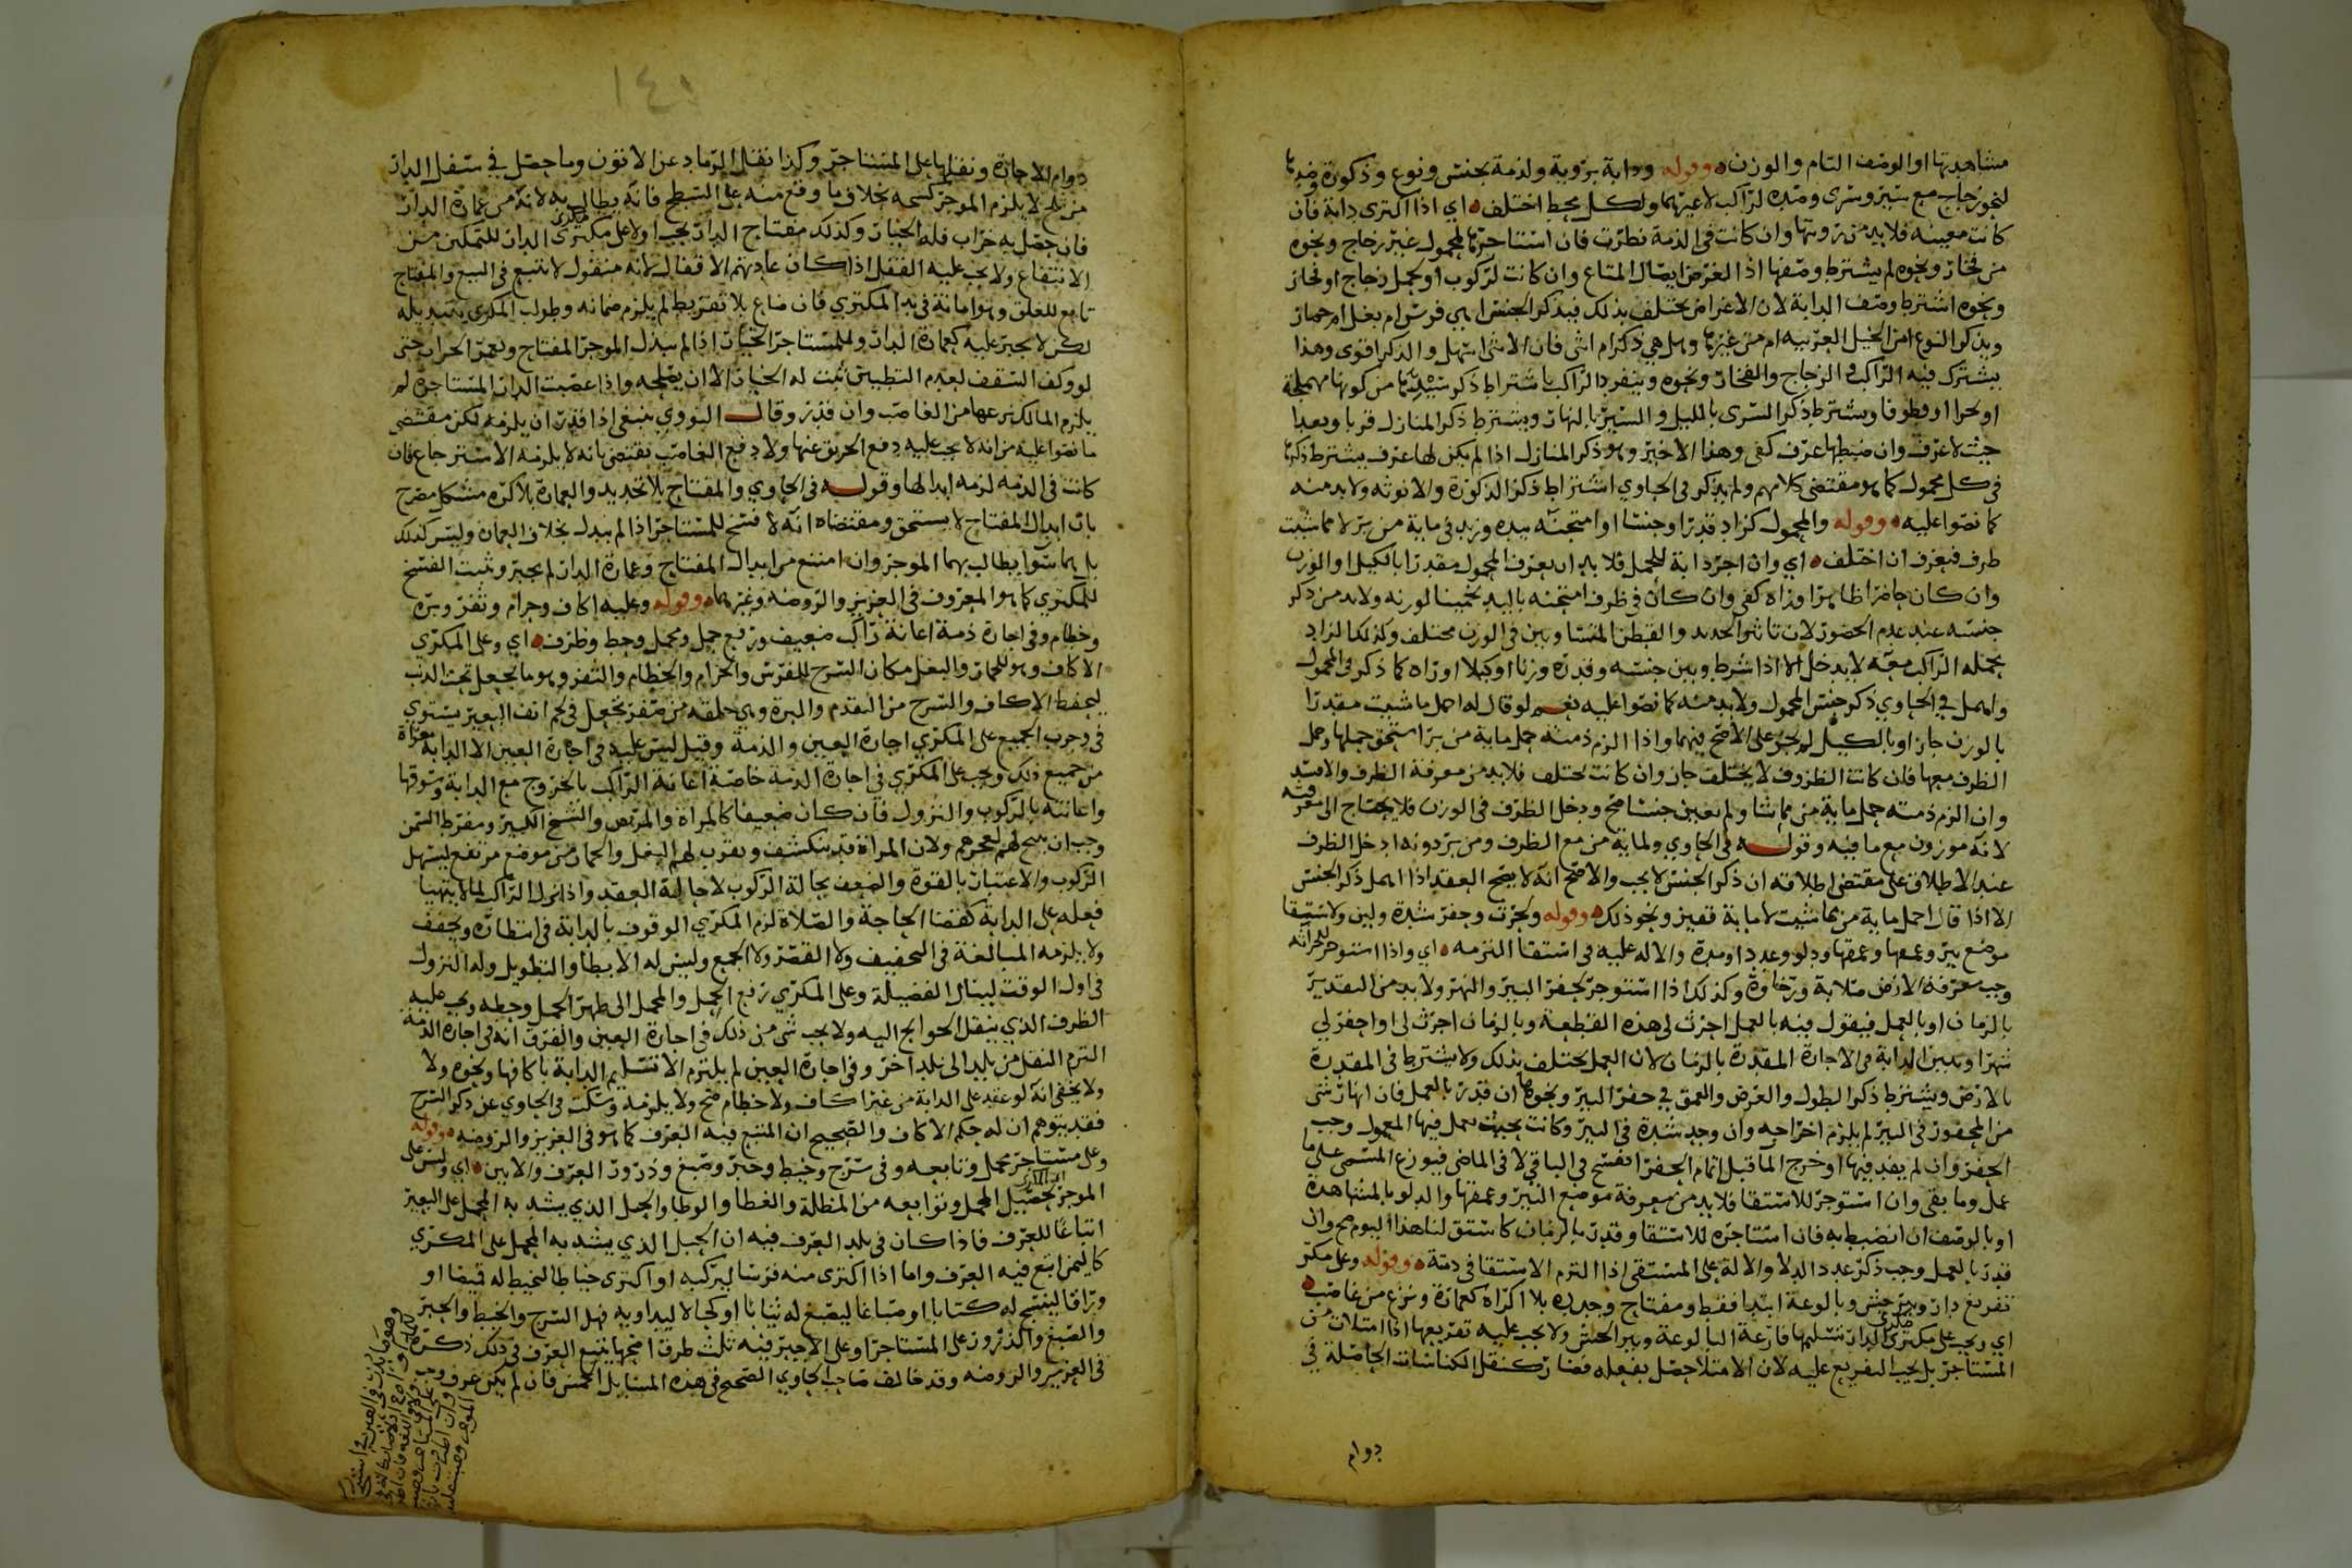 مشاهدتها او الوصف التام والوزن وقوله ودابة برؤية ولذمة بجنس ونوع وذكورة وضدها
لنحو زجاج مع سير وسرى وضده لراكب لا غيرهما ولكل محط اختلف اي اذا اكترى دابة فان
كانت معينه فلابد من رويتها وان كانت في الذمة نظرت فان استاجرها لمحمول غير زجاج ونحوه
من فخار ونحوه لم يشترط وصفها اذ الغرض ايصال المتاع وان كانت لركوب او لحمل زجاج او فخار
ونحوه اشترط وصف الدابة لان الاغراض تختلف بذلك فيذكر الجنس اهي فرس ام بغل ام حمار
ويذكر النوع امن الخيل العربيه ام من غيرها وهل هي ذكر ام انثى فان الانثى اسهل والذكر اقوى وهذا
يشترك فيه الراكب والزجاج والفخار ونحوه وينفرد الراكب باشتراط ذكر سيرها من كونها مهملجة
او بحرا او قطوفا ويشترط ذكر السرى بالليل والسير بالنهار ويشترط ذكر المنازل قربا وبعدا
حيث لا عرف وان ضبطها عرف كفى وهذا الاخير وهو ذكر المنازل اذا لم يكن لها عرف يشترط ذكرها
في كل محمول كما هو مقتضى كلامهم ولم يذكر في الحاوي اشتراط ذكر الذكورة والانوثه ولابد منه
كما نصوا عليه وقوله والمحمول كزاد قدرا وجنسا او امتحنه بيده وزيد في ماية من بر لا مما شيت
طرف فيعرف ان اختلف اي وان اجر دابة للحمل فلا بد ان يعرف المحمول مقدرا بالكيل او الوزن
وان كان حاضرا ظاهرا وراه كفى وان كان في ظرف امتحنه باليد تخمينا لوزنه ولابد من ذكر
جنسه عند عدم الحضور لان تاثير الحديد والقطن المتساويين في الوزن مختلف وكذلك الزاد
يحمله الراكب معه لا يدخل الا اذا شرط وبين جنسه وقدره وزنا او كيلا او راه كما ذكر في المحمول
واهمل في الحاوي ذكر جنس المحمول ولابد منه كما نصوا عليه نعم لو قال له احمل ما شيت مقدرا
بالوزن جاز او بالكيل لم يجز على الاصح فيهما واذا الزم ذمته حمل ماية من برا استحق حملها وحمل
الظرف معها فان كانت الظروف لا يختلف جاز وان كانت تختلف فلابد من معرفة الظرف والا فسد
وان الزم ذمته حمل ماية من مما شا ولم يعين جنسا صح ودخل الظرف في الوزن فلا يحتاج الى معرفته
لانه موزون مع ما فيه وقوله في الحاوي ولماية من مع الظرف ومن بر دونه ادخل الظرف
عند الاطلاق على مقتضى اطلاقه ان ذكر الجنس لا يجب والاصح انه لا يصح العقد اذا اهمل ذكر الجنس
الا اذا قال احمل ماية من مما شيت لا ماية قفيز ونحو ذلك وقوله ولحرث وحفر شدة ولين ولاستقا
موضع بير وعمقها ودلو وعددا ومدة والاله عليه في استقا التزمه اي واذا استوجر لحراثه
وجب معرفة الارض صلابة ورخاوة وكذلك اذا استوجر لحفر البير والنهر ولابد من التقدير
بالزمان او بالعمل فيقول فيه بالعمل احرث لي هذه القطعة وبالزمان احرث لي او احفر لي
شهرا وتعيين الدابة في الاجارة المقدرة بالزمان لان العمل يختلف بذلك ولا يشترط في المقدرة
بالارض ويشترط ذكر الطول والعرض والعمق في حفر البير ونحوها ان قدر بالعمل فان انهار شي
من المحفور في البير لم يلزم اخراجه وان وجد شدة في البير وكانت بحيث يعمل فيها المعول وجب
الحفر وان لم يفد فيها او خرج الما قبل اتمام الحفر انفسخ في الباقي لا في الماضي فيوزع المسمى على ما
عمل وما بقي وان استوجر للاستقا فلابد من معرفة موضع البير وعمقها والدلو بالمشاهدة
او بالوصف ان انضبط به فان استاجره للاستقا وقدر بالزمان كاستق لنا هذا اليوم صح وان
قدر بالعمل وجب ذكر عدد الدلا والالة على المستقي اذا التزم الاستقا في ذمة وقوله وعلى مكر
تفريغ دار وبير حش وبالوعة ابتدا فقط ومفتاح وجدده بلا اكراه كعمارة ونزع من غاصب
اي ويجب على مكري الدار تسليمها فارغة البالوعة وبير الحش ولا يجب عليه تفريغها اذا امتلات من
المستاجر بل يجب التفريغ عليه لان الامتلا حصل بفعله فصار كنقل الكناسات الحاصلة في
دوام
١٤١
دوام الاجارة ونقلها على المستاجر وكذا نقل الرماد عن الاتون وما حصل في سفل الدار
من ثلج لا يلزم الموجر كسحه بخلاف ما وقع منه على السطح فانه يطالب به لانه من عمارة الدار
فان حصل به خراب فله الخيار وكذلك مفتاح الدار يجب اولا على مكتري الدار للتمكين من
الانتفاع ولا يجب عليه القفل اذا كان عادتهم الاقفال لانه منقول لا تتبع في البيع والمفتاح
تابع للغلق وهو امانة في يد المكتري فان ضاع بلا تفريط لم يلزم ضمانه وطولب المكري بتبديله
لكن لا يجبر عليه كعمارة الدار وللمستاجر الخيار اذا لم يبدل الموجر المفتاح ويعمر الخراب حتى
لو وكف السقف لعدم التطيين ثبت له الخيار الا ان يصلحه واذا غصبت الدار المستاجره لم
يلزم المالك نزعها من الغاصب وان قدر وقال النووي ينبغي اذا قدر ان يلزمه لكن مقتضى
ما نصوا عليه من انه لا يجب عليه دفع الحريق عنها ولا دفع الغاصب يقتضي بانه لا يلزمه الاسترجاع فان
كانت في الذمه لزمه ابدالها وقوله في الحاوي والمفتاح بلا تجديد والعمارة بلا كره مشكل مصرح
بان ابدال المفتاح لا يستحق ومقتضاه انه لا فسخ للمستاجر اذا لم يبدل بخلاف العمارة وليس كذلك
بل هما سوا يطالب بهما الموجر وان امتنع من ابدال المفتاح وعمارة الدار لم يجبر وثبت الفسخ
للمكتري كما هو المعروف في العزيز والروضه وغيرهما وقوله وعليه اكاف وحزام وثفر وبره
وخطام وفي اجارة ذمة اعانة راكب ضعيف ورفع حمل ومحمل وحط وظرف اي وعلى المكري
الاكاف وهو للحمار والبغل مكان السرج للفرس والحزام والخطام والثفر وهو ما يجعل تحت الذنب
ليحفظ الاكاف والسرج من التقدم والبرة وهي حلقه من صفر تجعل في لحم انف البعير يستوي
في وجوب الجميع على المكري اجارة العين والذمة وقيل ليس عليه في اجارة العين الا الدابة معراة
من جميع ذلك ويجب على المكري في اجارة الذمة خاصة اعانة الراكب بالخروج مع الدابة وسوقها
واعانته بالركوب والنزول فان كان ضعيفا كالمراة والمريض والشيخ الكبير ومفرط السمن
وجب ان ينيخ لهم لعجزهم ولان المراة قد تنكشف ويقرب لهم البغل والحمار من موضع مرتفع ليسهل
الركوب والاعتبار بالقوة والضعف بحالة الركوب لا حالة العقد واذا نزل الراكب لما لا يتهيا
فعله على الدابة كقضا الحاجة والصلاة لزم المكري الوقوف بالدابة في انتظاره ويخفف
ولا يلزمه المبالغة في التخفيف ولا القصر ولا الجمع وليس له الابطا والتطويل وله النزول
في اول الوقت لينال الفضيلة وعلى المكري رفع الحمل والمحمل الى ظهر الجمل وحطه ويجب عليه
الظرف الذي ينقل الحوايج اليه ولا يجب شي من ذلك في اجارة العين والفرق انه في اجارة الذمه
التزم النقل من بلد الى بلد اخر وفي اجارة العين لم يلتزم الا تسليم الدابة باكافها ونحوه ولا
ولا يخفى انه لو عقد على الدابة من غير اكاف ولا خطام صح ولا يلزمه وسكت في الحاوي عن ذكر السرج
فقد يتوهم ان له حكم الاكاف والصحيح ان المتبع فيه العرف كما هو في العزيز والروضه وقوله
وعلى مستاجر محمل وتابعه وفي سرج وخيط وحبر وصبغ وذرور العرف والا بين اي وليس على
الموجر تحصيل المحمل وتوابعه من المظلة والغطا والوطا والحبل الذي يشد به المحمل على البعير
اتباعا للعرف فاذا كان في بلد العرف فيه ان الحبل الذي يشد به المحمل على المكري
كاليمن اتبع فيه العرف واما اذا اكترى منه فرسا ليركبه او اكترى خياطا ليخيط له قميصا او
وراقا لينسخ له كتابا او صباغا ليصبغ له ثيابا او كحالا ليداويه فهل السرج والخيط والحبر
والصبغ والذرور على المستاجر او على الاجير فيه ثلث طرق اصحها يتبع العرف في ذلك ذكره
في العزيز والروضه وقد خالف صاحب الحاوي الصحيح في هذه المسايل الخمس فان لم يكن عرف وجب